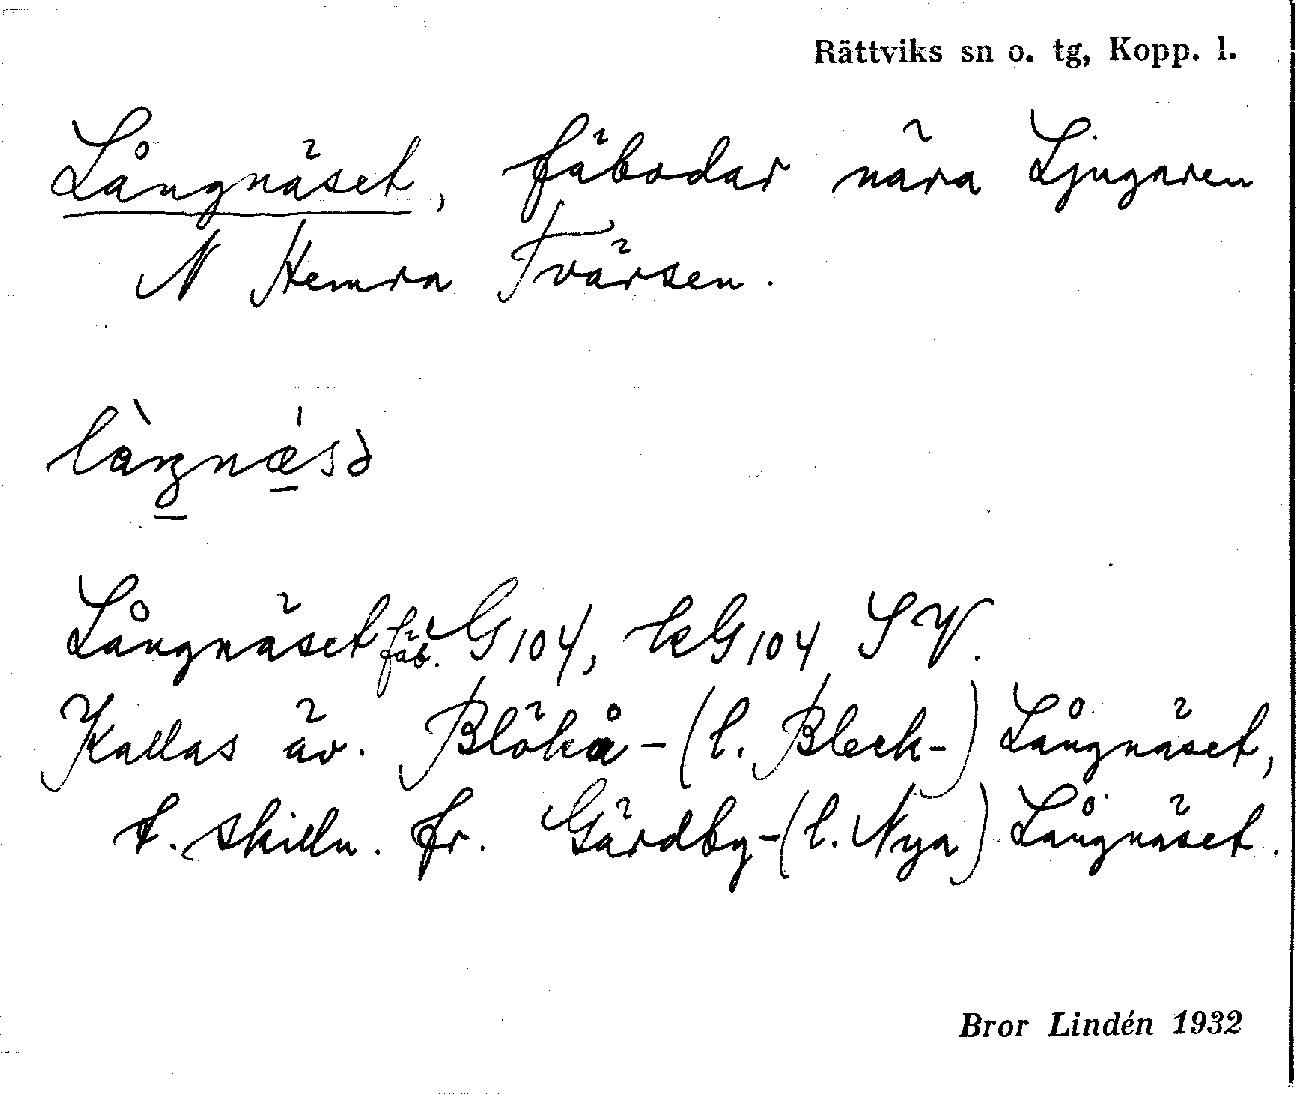 Rättviks sn o. tg, Kopp. l.
Långnäset, fäbodar nära Ljugaren
N Hemra Tvärsen.
Långnäset fäb. G104, kG104 SV.
Kallas äv. Blökå-(l. Bleck-) Långnäset,
t. skilln. fr. Gärdby-(l. Nya) Långnäset.
Bror Lindén 1932